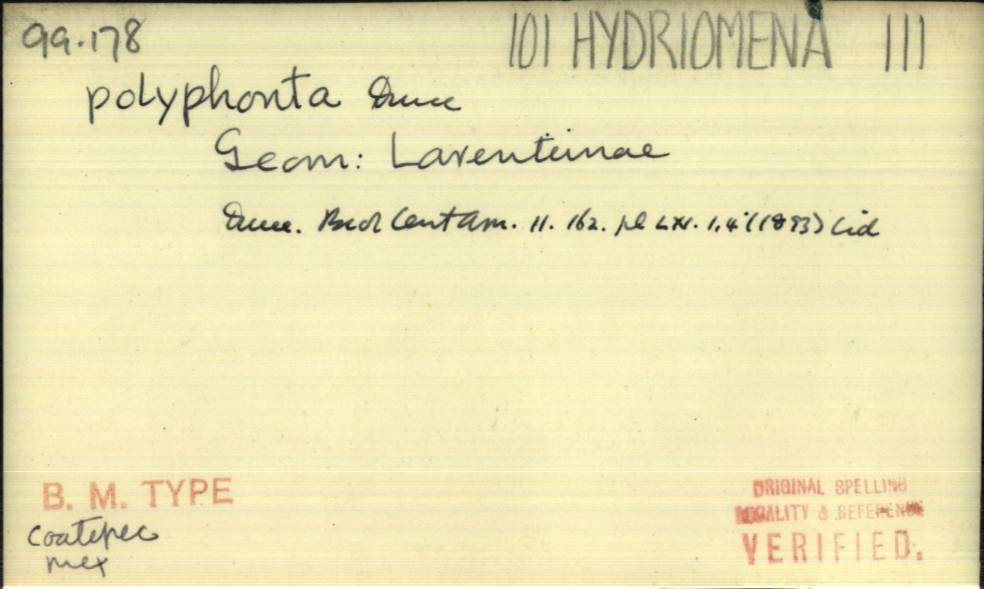 99.178
101 HYDRIOMENA 111
polyphonta Druce
Geom: Larentiinae
Druce. Biol Cent Am. 11. 162. pl LXI. 1,4 (1893) Cid
B. M. TYPE
ORIGINAL SPELLING
LOCALITY & REFERENCE
VERIFIED.
Coatepec
Mex